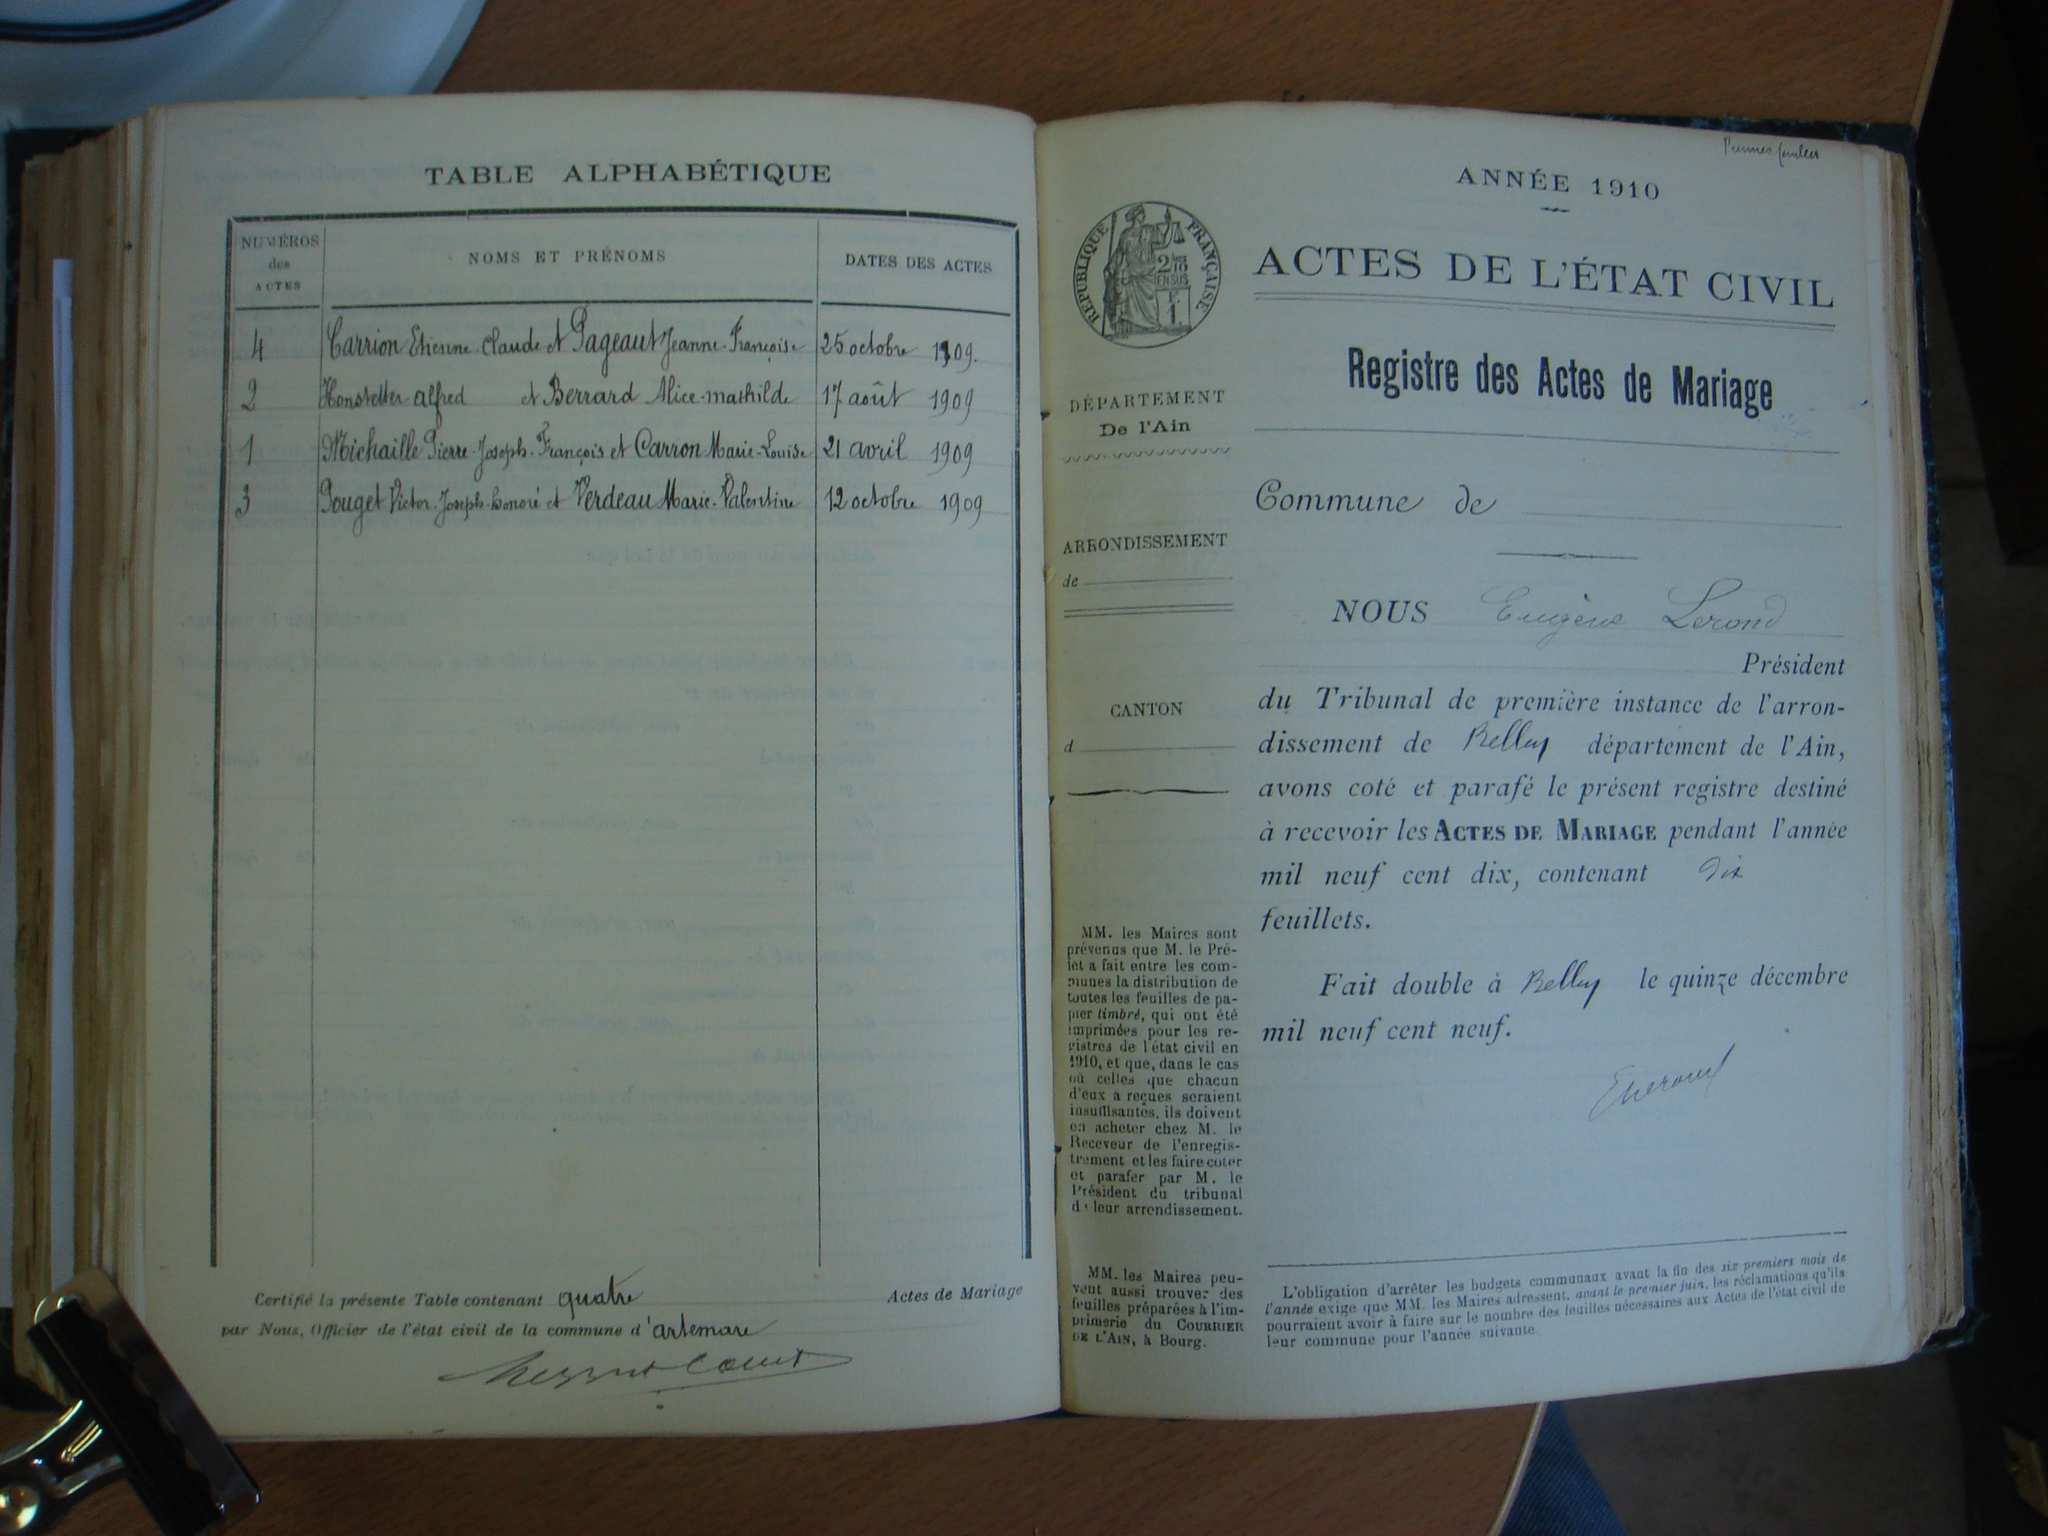 TABLE ALPHABÉTIQUE
NUMÉROS
des
ACTES
NOMS ET PRÉNOMS
DATES DES ACTES
4 Carrion Etienne-Claude et Pageaut Jeanne-Françoise 25 octobre 1909.
2 Honstetter alfred et Berrard Alice-mathilde 17 août 1909
1 Michaille Pierre-Joseph-François et Carron Marie-Louise 21 avril 1909
3 Pouget Victor-Joseph-honoré et Verdeau Marie-Valentine 12 octobre 1909
Certifié la présente Table contenant quatre Actes de Mariage
par Nous, Officier de l'état civil de la commune d'artemare
ANNÉE 1910
RÉPUBLIQUE FRANÇAISE
ACTES DE L'ÉTAT CIVIL
Registre des Actes de Mariage
DÉPARTEMENT
De l'Ain
Commune de
ARRONDISSEMENT
de
NOUS Eugène Lerond
Président
du Tribunal de première instance de l'arron-
dissement de Belley département de l'Ain,
avons coté et parafé le présent registre destiné
à recevoir les ACTES DE MARIAGE pendant l'année
mil neuf cent dix, contenant dix
feuillets.
Fait double à Belley le quinze décembre
mil neuf cent neuf.
CANTON
d
MM. les Maires sont
prévenus que M. le Pré-
fet a fait entre les com-
munes la distribution de
toutes les feuilles de pa-
pier timbré, qui ont été
imprimées pour les re-
gistres de l'état civil en
1910, et que, dans le cas
où celles que chacun
d'eux a reçues seraient
insuffisantes, ils doivent
en acheter chez M. le
Receveur de l'enregis-
trement et les faire coter
et parafer par M. le
Président du tribunal
de leur arrondissement.
MM. les Maires peu-
vent aussi trouver des
feuilles préparées à l'im-
primerie du COURRIER
DE L'AIN, à Bourg.
L'obligation d'arrêter les budgets communaux avant la fin des six premiers mois de
l'année exige que MM. les Maires adressent, avant le premier juin, les réclamations qu'ils
pourraient avoir à faire sur le nombre des feuilles nécessaires aux Actes de l'état civil de
leur commune pour l'année suivante.